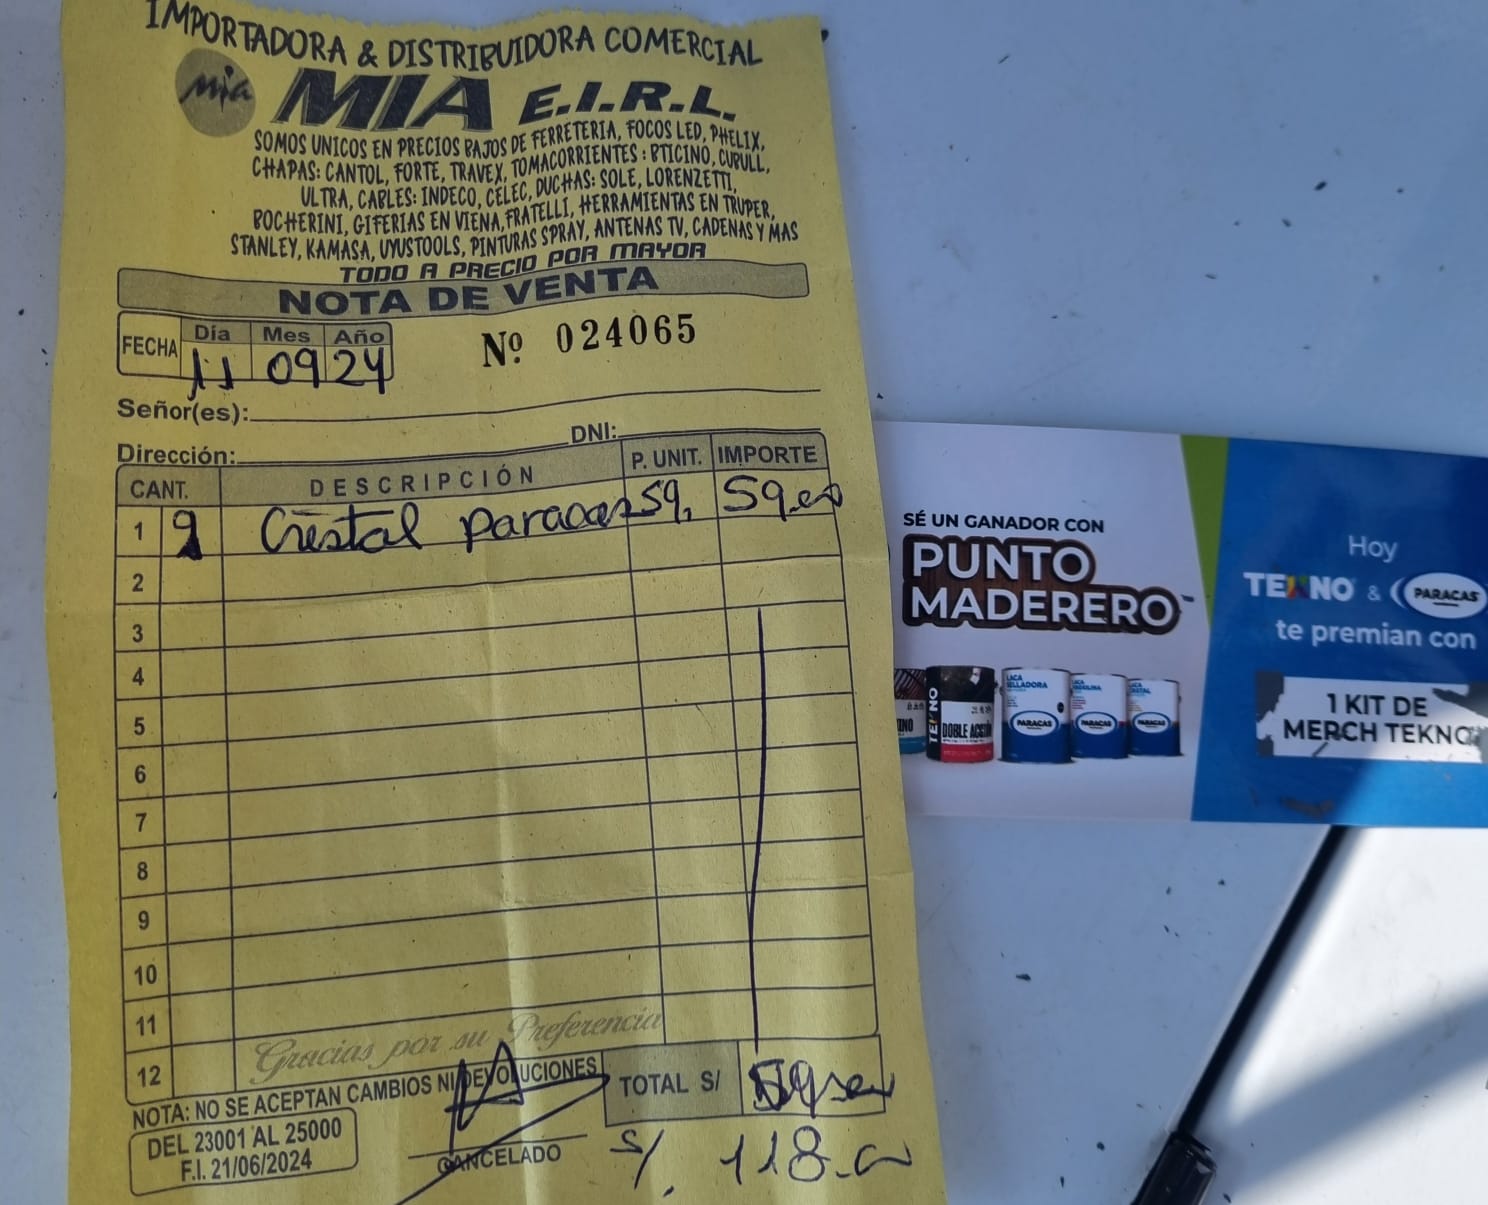 IMPORTADORA & DISTRIBUIDORA COMERCIAL
mia MIA E.I.R.L.
SOMOS UNICOS EN PRECIOS BAJOS DE FERRETERIA, FOCOS LED, PHELIX,
CHAPAS: CANTOL, FORTE, TRAVEX, TOMACORRIENTES : BTICINO, CUBULL,
ULTRA, CABLES: INDECO, CELEC, DUCHAS: SOLE, LORENZETTI,
BOCHERINI, GIFERIAS EN VIENA, FRATELLI, HERRAMIENTAS EN TRUPER,
STANLEY, KAMASA, UYUSTOOLS, PINTURAS SPRAY, ANTENAS TV, CADENAS Y MAS
TODO A PRECIO POR MAYOR
NOTA DE VENTA
FECHA Día Mes Año
11 09 24
Nº 024065
Señor(es):
Dirección: DNI:
CANT. DESCRIPCIÓN P. UNIT. IMPORTE
1 2 Cristal paracas 59, 59.00
2
3
4
5
6
7
8
9
10
11
12
Gracias por su Preferencia
NOTA: NO SE ACEPTAN CAMBIOS NI DEVOLUCIONES
TOTAL S/
DEL 23001 AL 25000
F.I. 21/06/2024
CANCELADO
S/. 118.00
SÉ UN GANADOR CON
PUNTO
MADERERO
LACA
SELLADORA
PARACAS
TEKNO
DOBLE ACCIÓN
PARACAS
PARACAS
Hoy
TEKNO & PARACAS
te premian con
1 KIT DE
MERCH TEKNO